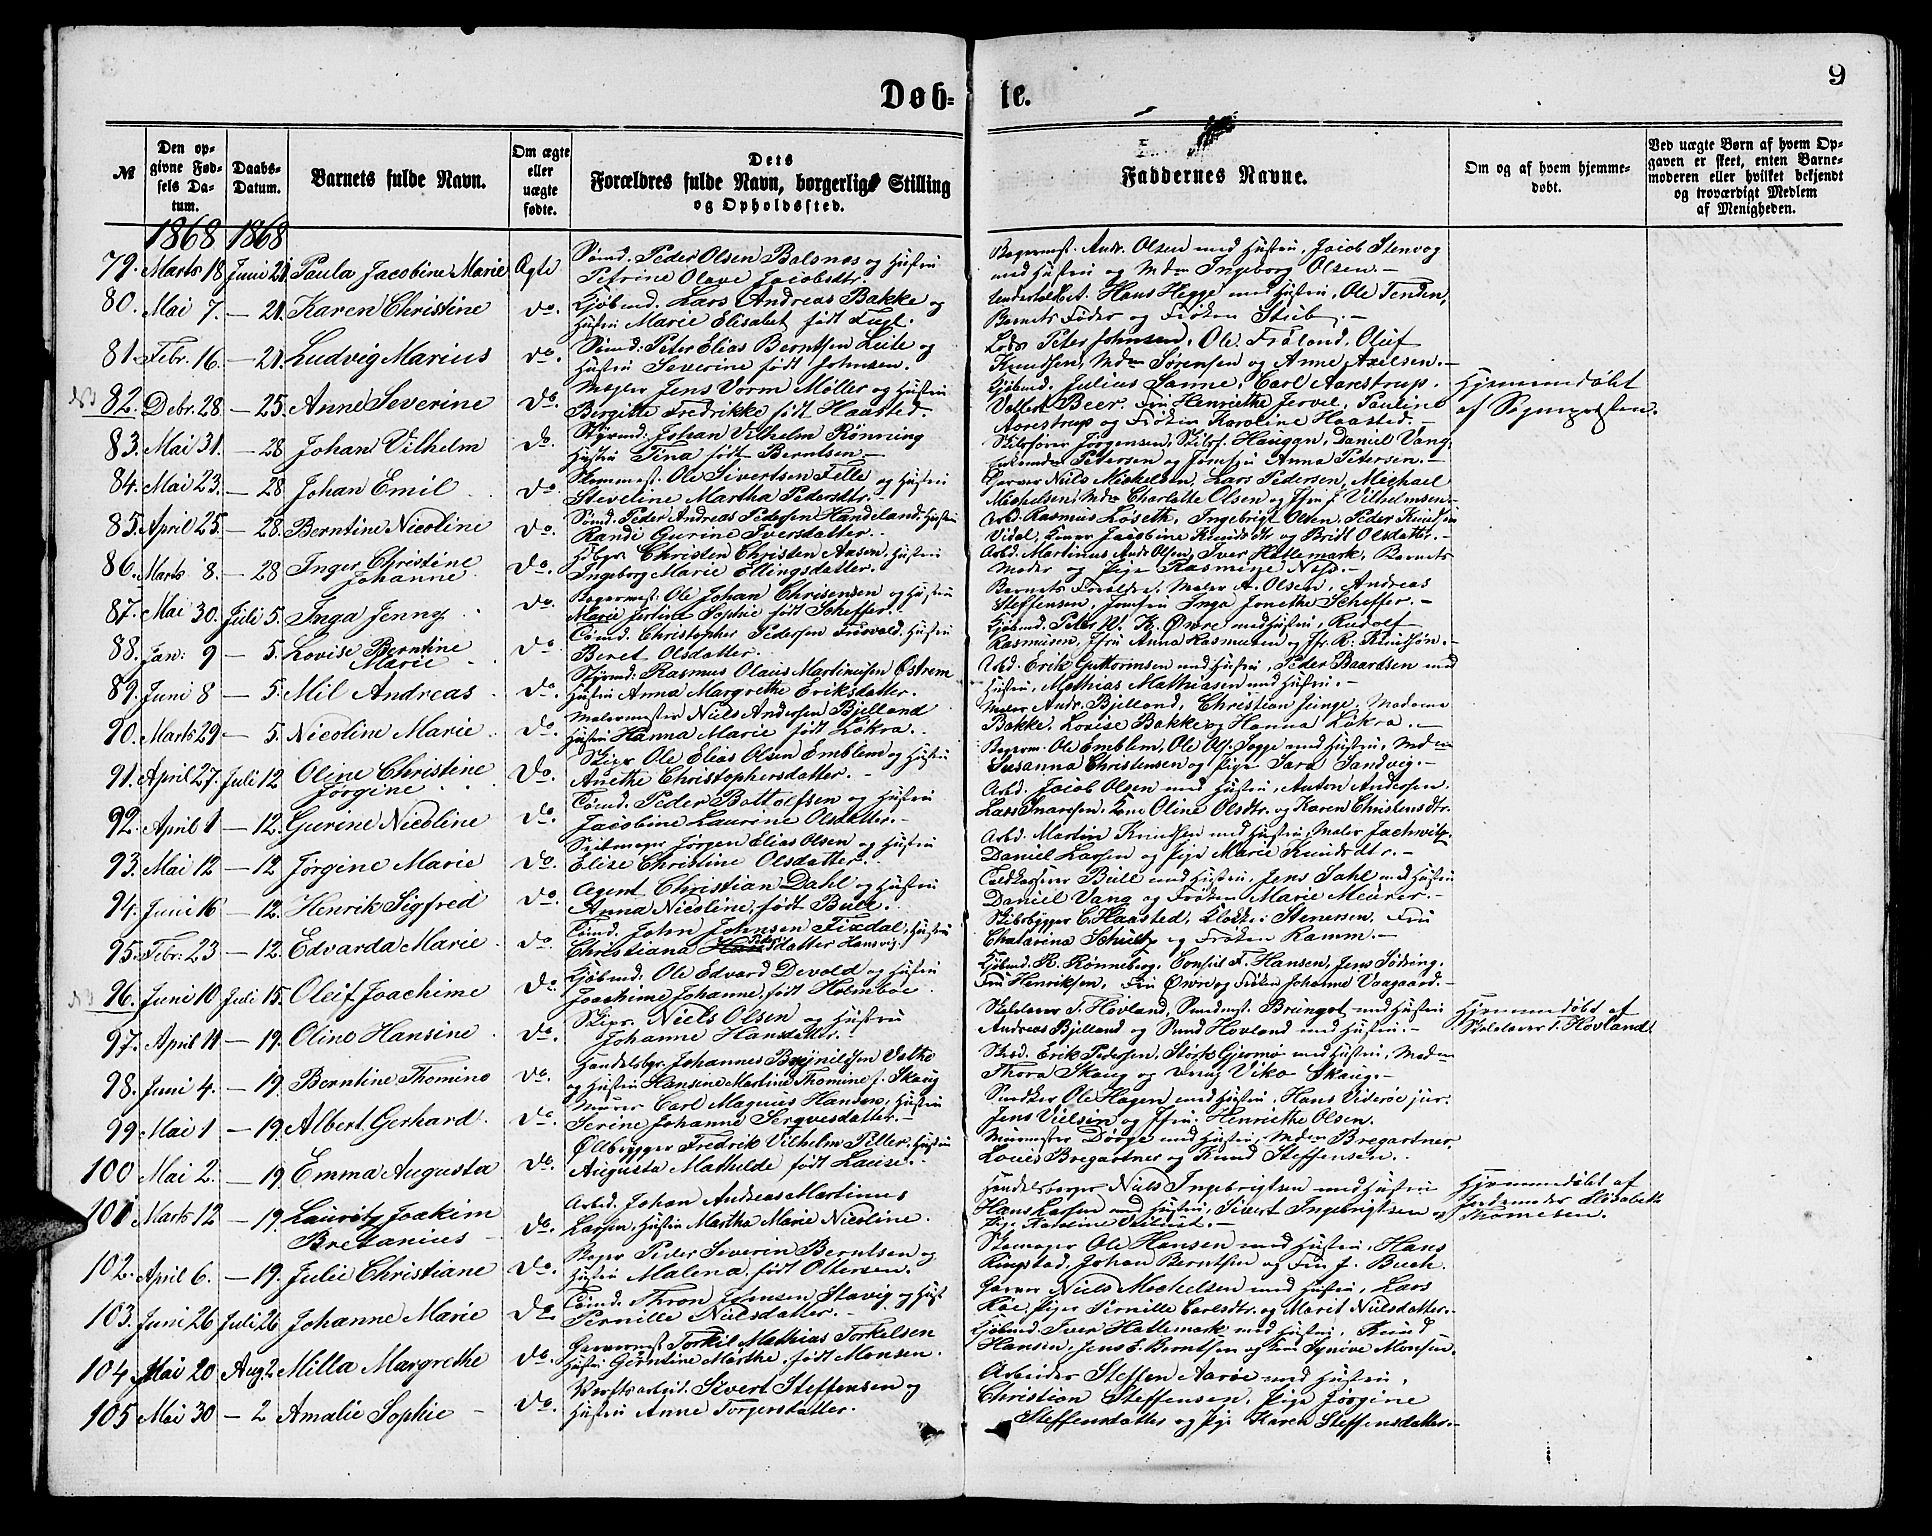 Døb-
te.
9
№
Den opgivne Fødsels Datum.
Daabs-Datum.
Barnets fulde Navn.
Om ægte eller uægte fødte.
Dets Forældres fulde Navn, borgerlige Stilling og Opholdssted.
Faddernes Navne.
Om og af hvem hjemmedøbt.
Ved uægte Børn af hvem Opgaven er skeet, enten Barnemoderen eller hvilket bekjendt og troværdigt Medlem af Menigheden.
1868 1868
79. Marts 18 Juni 21 Paula Jacobine Marie Ægte Sømd. Peder Olsen Balsnes og Hustru
Petrine Olave Jacobsdtr.
Bagermst. Andr. Olsen med Hustru, Jacob Stenvog
med Hustru og Mdm Ingeborg Olsen.-
80. Mai 7. - 21. Karen Christine do. Gjøbmd. Lars Andreas Bakke og
Hustru Marie Elisabet født Fugl.
Hans Hegge med Hustru, Ole Tenden,
Barnets Fader og Frøken Stub.-
81. Febr. 16. - 21. Ludvig Marius do. Sømd: Peter Elias Berntsen Leite og
Hustru Severine født Johnsen.
Lods Peter Johnsen, Ole Frøland, Oluf
Knudsen, Mdm Sørensen og Anne Axelsen.-
NB 82. Debr. 28. - 25. Anne Severine do. Mægler Jens Worm Møller og Hustru
Bergitte Fredrikke født Haasted.
Gjøbmd. Julius Sanne, Carl Aarestrup.
Beer. Fru Henriethe Jervel, Pauline
Aarestrup og Frøken Karoline Haasted.-
Hjemmedøbt
af Sognepresten.
83. Mai 31. - 28 Johan Vilhelm do. Styrmd. Johan Vilhelm Rønning
Hustru Tina født Berntsen.-
Skibsfører Jørgensen, Daniel Vang,
Petersen og Jomfru Anna Petersen.-
84. Mai 23. - 28 Johan Emil do Ole Sivertsen Felle og Hustru
Steveline Martha Pedersdtr.
Garver Niels Mickelsen, Lars Pedersen, Michael
Mickelsen, Mdm Charlotte Olsen og Vilhelmsen.-
85. April 25. - 28. Berntine Nicoline do. Sømd. Peder Andreas Pedersen Handeland, Hustru
Rande Gurine Iversdatter.
Arbd. Rasmus Løseth, Ingebrigt Olsen, Peder Knudsen
Vidal, Jacobine Knudsdtr og Bridt Olsdatter.-
86. Marts 8. - 28 Inger Christine
Johanne do. Christen Christen Aasen, Hustru
Ingeborg Marie Ellingsdatter.
Arbd. Martinus Andr. Olsen, Iver Hattemark, Barnets
Moder og Pige Rasmine
87. Mai 30. Juli 5. Inga Jenny do. Bagermest. Ole Johan Chrisensen og Hustru
Marie Sophie født Scheffer.
Barnets Forældre, Maler A. Olsen, Andreas
Steffensen, Jomfru Inga Jonethe Scheffer.-
88. Jan: 9 - 5. Lovise Berntine
Marie do. Christopher Pedersen Hustru
Beret Olsdatter.
Gjøbmd. Peter W. K. Øwre med Hustru, Rudolf
Rasmusen, Anna Rasmusen og Knudsøn.-
89. Juni 8 - 5. Mil Andreas do. Styrmd. Rasmus Olaus Martinusen Østrem
Hustru Anna Margrethe Eriksdatter.
Arbd. Erik Guttormsen med Hustru, Peder Baardsen med
Hustru, Mathias Mathiasen med Hustru.-
90. Marts 29 - 5. Nicoline Marie do. Malermester Niels Andersen Bjelland
Hustru Hanna Marie født Løkra.
Maler Andr. Bjelland, Christian Junge, Madame
Bakke, Lovise Bakke og Hanna Løkra.-
91. April 27. Juli 12. Oline Christine
Jørgine do. Skipr Ole Elias Olsen Emblem og Hustru
Anethe Christophersdatter.-
Bagerm. Ole Emblem, Ole med Hustru, Mdm
Susanna Christensen og Pige Sara Sandvig.-
92. April 1 - 12. Gurine Nicoline do. Peder Bottolfsen og Hustru
Jacobine Laurine Olsdatter.-
Arbd. Jacob Olsen med Hustru, Anton Andersen,
Lars Oline Olsdtr. og Karen Christensdtr.
93. Mai 12 - 12 Jørgine Marie do Jørgen Elias Olsen og Hustru
Elise Christine Olsdatter.
Arbd. Martin Knudsen med Hustru, Maler Jachwitz,
Daniel Larsen og Pige Marie Knudsdtr.-
94. Juni 16 - 12. Henrik Sigfred do. Agent Christian Dahl og Hustru
Anna Nicoline, født Bull.
Toldkasserer Bull med Hustru, Jens Dahl med Hustru
Daniel Vang og Frøken Marie Meurer.-
95. Febr: 23 - 12. Edvarda Marie do. John Johnsen Fixdal, Hustru
Christiana Pedersdatter
Skibsbygger C. Haasted, Klokker Stenersen, Fru
Chatarina Schultz og Frøken Ramm.-
NB 96. Juni 10 Juli 15. Oluf Joachime do. Gjøbmd: Ole Edvard Devold og Hustru
Joachime Johanne, født Holmboe
Gjøbmd. R. Rønneberg, Consul F. Hansen, Jens
Fru Henriksen, Fru Øwre og Frøken Johanne Vaagaard.-
97. April 11 - 19. Oline Hansine do. Skipr. Niels Olsen og Hustru
Johanne Hansdatter.-
Skolelærer T. Hovland, Brungot med Hustru
Andreas Bjelland og Hovland med Hustru.-
Hjemmedøbt af
Skolelærer T. Hovland.
98. Juni 4. - 19. Berntine Thomine do. Handelsbgr. Johannes Brynildsen
og Hustru Hansine Martine Thomine f. Skaug
Erik Pedersen, Størk Gjermo med Hustru, Mdm
Thora Skaug og Viko Skaug.-
99 Mai 1 - 19. Albert Gerhard. do. Murer Carl Magnus Hansen, Hustru
Serine Johanne Sergvesdatter.-
Ole Hagen med Hustru, Hans Viderøe jur.
Jens og Henriethe Olsen.
100 Mai 2. - 19. Emma Augusta do. Ølbrygger Fredrik Vilhelm Peller, Hustru
Augusta Mathilde født Lause.
Murmester Dørge med Hustru, Mdm Bregartner,
Louis Bregartner og Knud Steffensen.
101 Marts 12 - 19. Lauritz Joakim
Bretanius do. Arbd. Johan Andreas Martinus
Larsen, Hustru Martha Marie Nicoline.
Handelsborger Niels Ingebrigtsen med Hustru
Hans Larsen med Hustru, Sivert Ingebrigtsen og
Pige Karoline
Hjemmedøbt af
Jordemoder Elisabeth
Thomesen.
102. April 6. - 19. Julie Christiane do. Bager Peder Severin Berntsen og
Hustru Malena, født Ottersen.
Skomager Ole Hansen med Hustru, Hans
Ringstad, Johan Berntsen og Fru J. Buch.
103. Juni 26 Juli 26 Johanne Marie do. Thron Jensen Stavig og Hust
Pernille Nielsdatter.-
Garver Niels Mickelsen med Hustru, Lars
Røe, Piger Pernille Carlsdtr. og Marit Nielsdatter.-
104. Mai 20 Aug. 2 Milla Margrethe do. Garvermst Torkil Mathias Torkelsen
Hustru Gerntine Marthe, født Monsen.
Gjøbmd. Iver Hattemark med Hustru, Knud
Hansen, Jens E. Berntsen og Synøve Monsen.
105 Mai 30 - 2 Amalie Sophie - do. Værftsarbeid. Sivert Steffensen og
Hustru Anne Torgersdatter.
Arbeider Steffen Aarøe med Hustru,
Christian Steffensen, Pige Jørgine
Steffensdatter og Pige Karen Steffensdatter.-